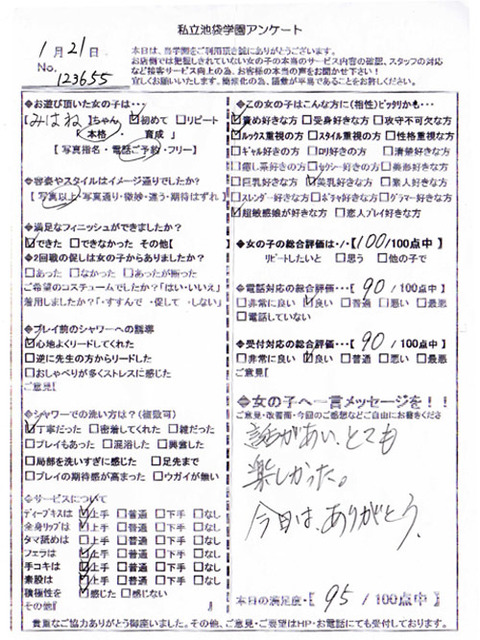 私立池袋学園アンケート
1月21日
No. 123655
本日は、当学園をご利用頂き誠にありがとうございます。
お店側では把握しきれていない女の子の本当のサービス内容の確認、スタッフの対応
など接客サービス向上の為、お客様の本当の声をお聞かせ下さい!
宜しくお願いいたします。簡素化の為、語彙が平易であることをお許しください。
◆お遊び頂いた女の子は…
[みはね]ちゃん ☑初めて □リピート
「本格・育成」
【写真指名・電話ご予約・フリー】
◆容姿やスタイルはイメージ通りでしたか?
[写真以上・写真通り・微妙・違う・期待はずれ]
◆満足なフィニッシュができましたか?
☑できた □できなかった その他[
◆2回戦の促しは女の子からありましたか?
□あった □なかった □あったが断った
ご希望のコスチュームでしたか?「はい・いいえ」
着用しましたか?・すすんで ・促して ・しない」
◆プレイ前のシャワーへの誘導
☑心地よくリードしてくれた
□逆に先生の方からリードした
□おしゃべりが多くストレスに感じた
ご意見[
◆シャワーでの洗い方は?(複数可)
☑丁寧だった □密着してくれた □雑だった
□プレイもあった □混浴した □興奮した
□局部を洗いすぎに感じた □足先まで
□プレイの期待感が高まった □ウガイが無い
◆サービスについて
ディープキスは ☑上手 □普通 □下手 □なし
全身リップは ☑上手 □普通 □下手 □なし
タマ舐めは □上手 □普通 □下手 □なし
フェラは ☑上手 □普通 □下手 □なし
手コキは ☑上手 □普通 □下手 □なし
素股は ☑上手 □普通 □下手 □なし
積極性を ☑感じた □感じない
その他『 』
◆この女の子はこんな方に(相性)ピッタリかも…
☑責め好きな方 □受身好きな方 □攻守不可欠な方
☑ルックス重視の方 □スタイル重視の方 □性格重視な方
□ギャル好きの方 □ロリ好きの方 □清楚好きな方
□癒し系好きの方 □セクシー好きの方 □美形好きな方
□巨乳好きな方 ☑美乳好きな方 □素人好きな方
□スレンダー好きな方 □ポチャ好きな方 □グラマー好きな方
☑超敏感娘が好きな方 □恋人プレイ好きな方
◆女の子の総合評価は・・[100/100点中]
リピートしたいと □思う □他の子で
◆電話対応の総合評価…[90/100点中]
□非常に良い ☑良い □普通 □悪い □最悪
□電話していない
◆受付対応の総合評価…[90/100点中]
□非常に良い ☑良い □普通 □悪い □最悪
ご意見[
◆女の子へ一言メッセージを!!
ご意見・改善面・今回のご感想などご自由にお書きくださ
話があい、とても
楽しかった。
今日は、ありがとう。
本日の満足度・[95/100点中]
貴重なご協力ありがとう御座いました。その他、ご意見・ご要望はHP・お電話にても受付しております。